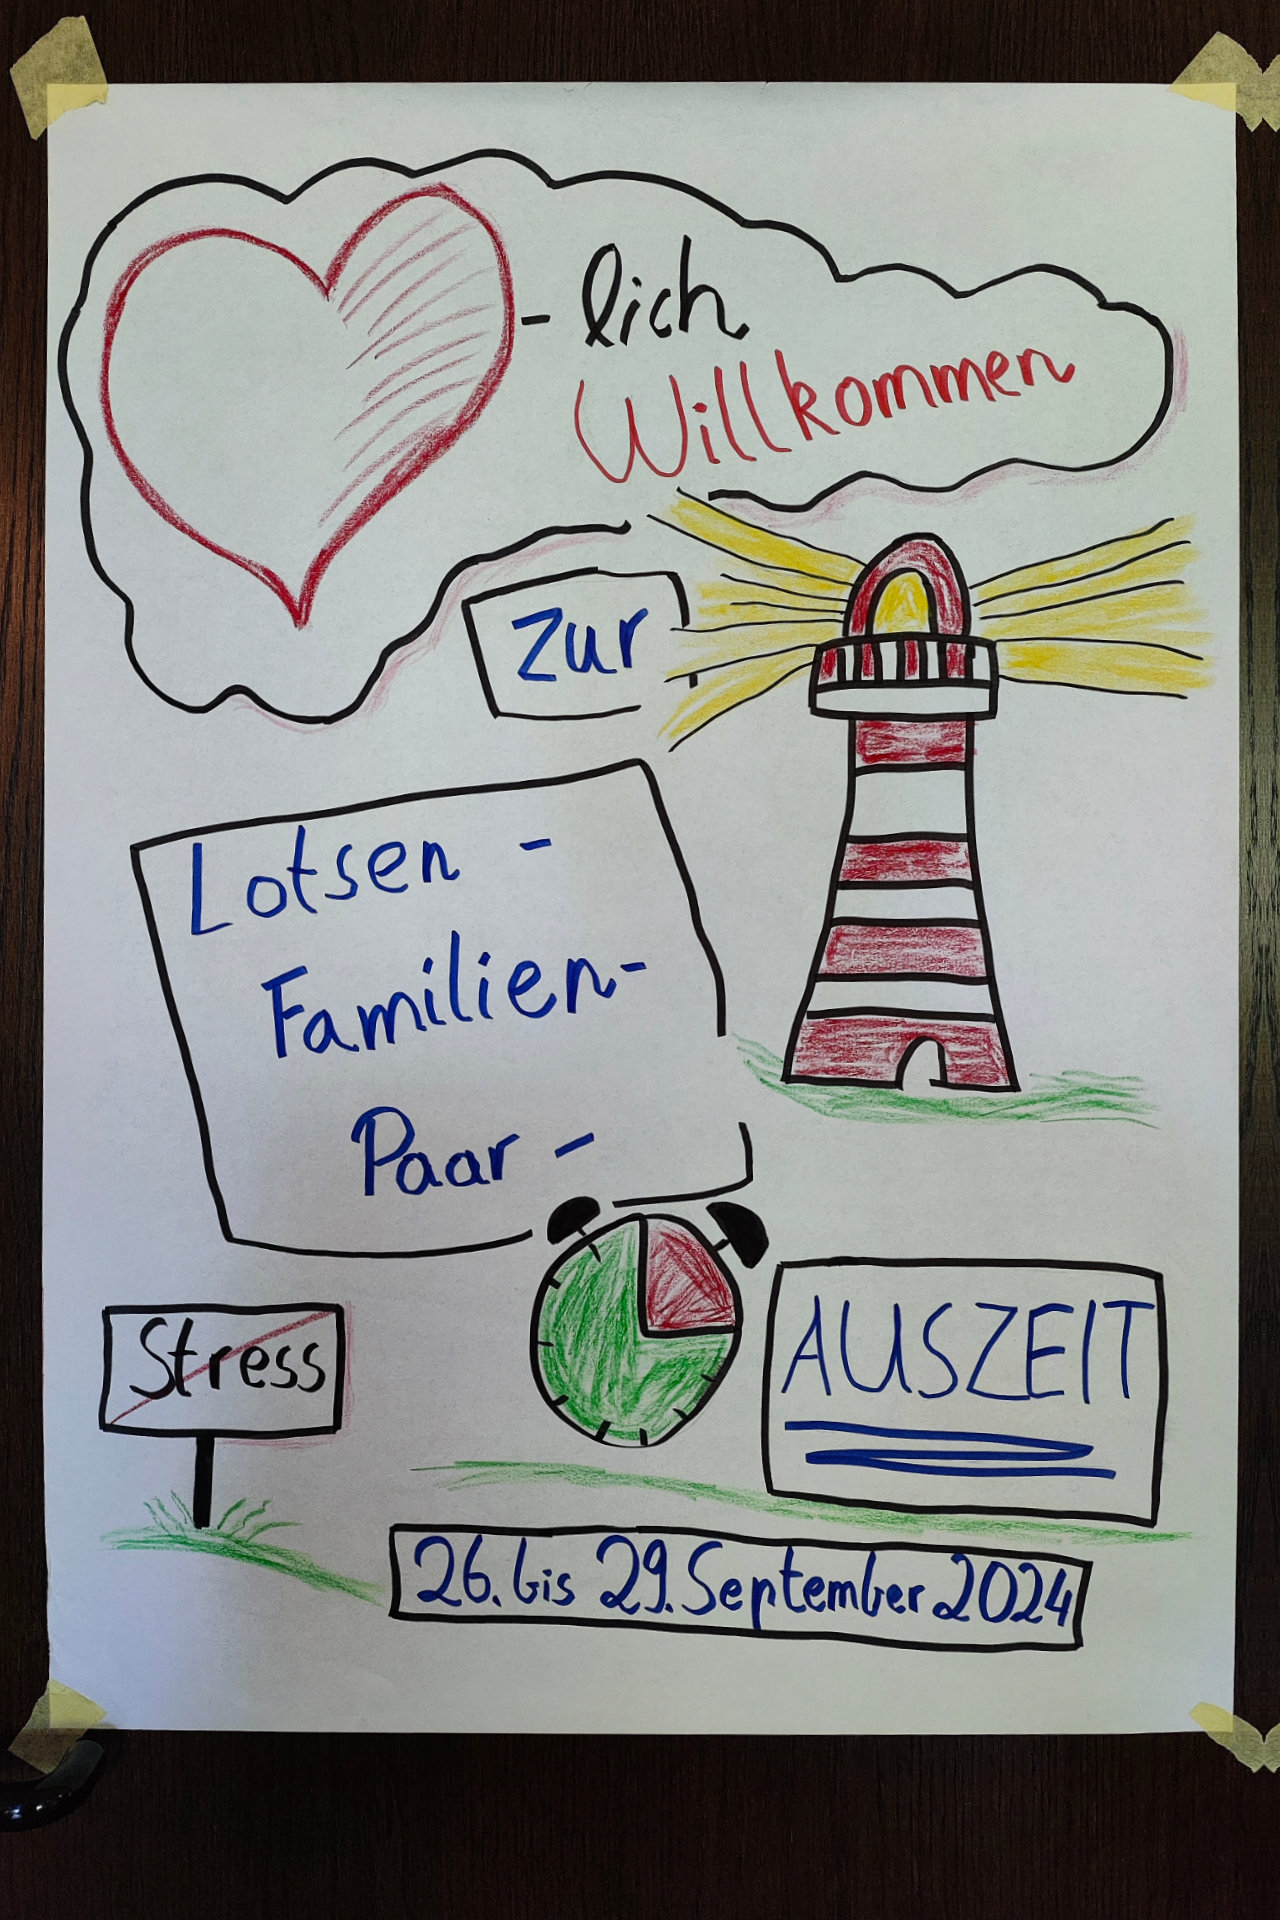 - lich
Willkommen
zur
Lotsen -
Familien-
Paar -
Stress
AUSZEIT
26. bis 29. September 2024